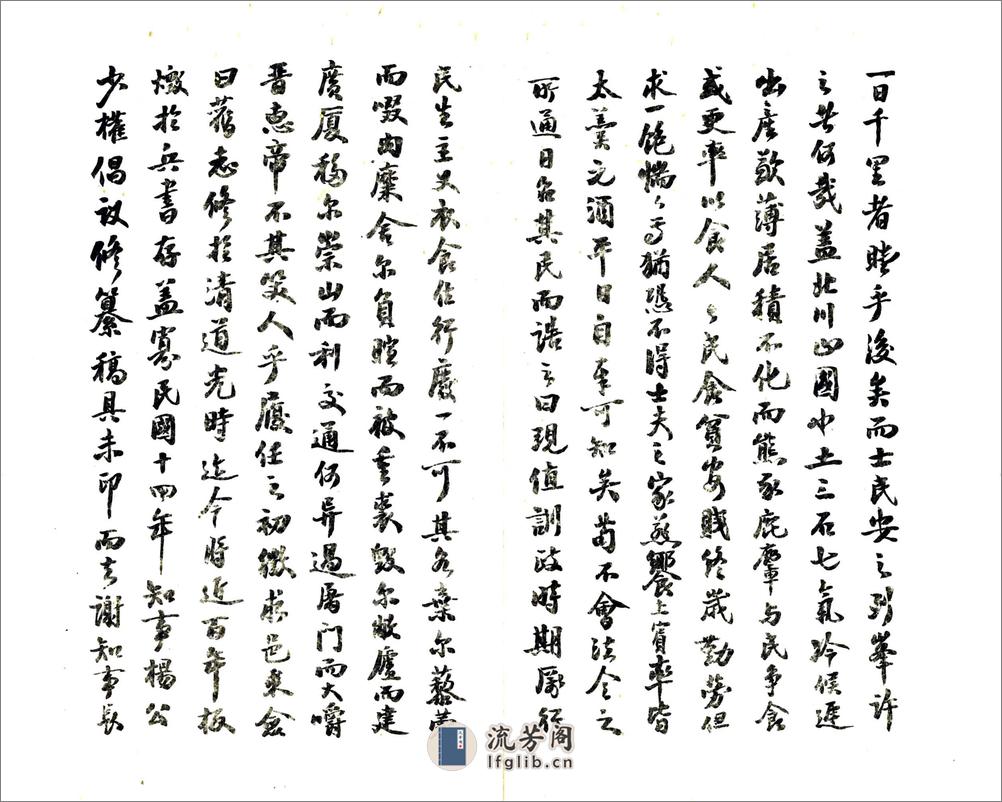 一日千里者瞠乎後矣而士民安之列峯許
之者何哉盖北川山國也土三石七氣冷候遲
出產歉薄居積不化而熊豕鹿麞与民争食
或更率以食人之民食貧安賤終歲勤勞但
求一飽惴々焉猶恐不得士夫之家燕饗上賓率皆
太羹元酒平日自奉可知矣苟不會法令之
所通日召其民而誥之曰現值訓政時期厲行
民生主义衣食住行廢一不可其各棄尔藜藿
而啜肉糜舍尔負暄而被重裘毀尔敝廬而建
廣厦移尔崇山而利交通何异過屠門而大嚼
晋惠帝不其笑人乎履任之初徵求邑乘僉
曰舊志修於清道光時迄今時近百年板
燬於兵書存盖寡民國十四年知事楊公
少權倡議修纂稿具未印而去謝知事長
流芳阁
lfglib.cn